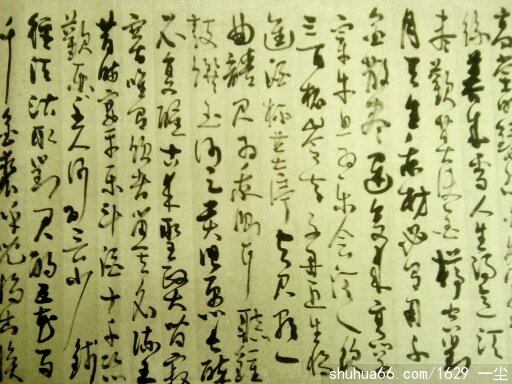 高堂明鏡悲
絲暮成雪人生得意須
盡歡莫使金樽空對
月天生我材必有用千
金散盡還復來烹羊
宰牛且為樂會須一飲
三百杯岑夫子丹丘生將
進酒杯莫停與君歌一
曲請君為我側耳聽鐘
鼓饌玉何足貴但願長醉
不復醒古來聖賢皆寂
寞唯有飲者留其名陳王
昔時宴平樂斗酒十千恣
歡主人何為言少錢
徑須沽取對君酌五花馬
千金裘呼兒將出換
shuhua66.com / 1629 一尘